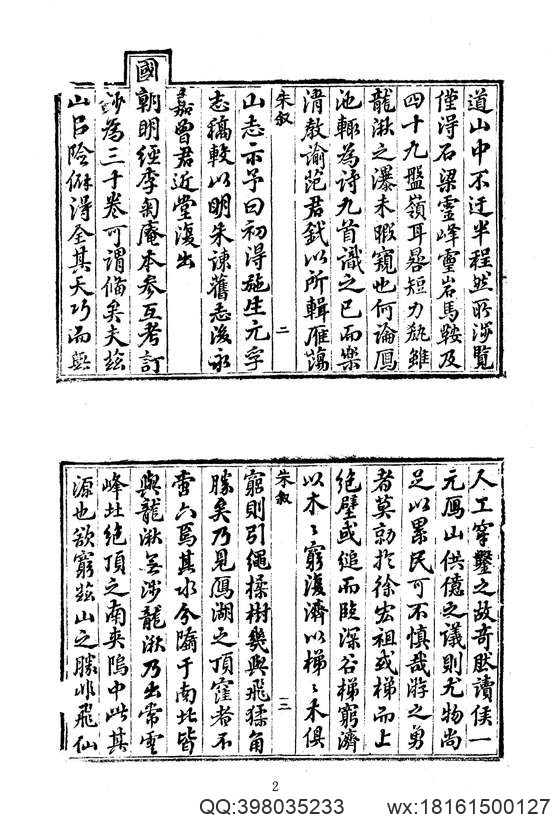 道山中不迂半程然所涉覽
僅得石梁靈峰靈岩馬鞍及
四十九盤嶺耳晷短力孱雖
龍湫之瀑未暇窺也何論鴈
池輒為詩九首識之已而樂
清教諭范君鉞以所輯雁蕩
朱叙
二
山志示予曰初得施生元孚
志稿較以明朱諫舊志後永
嘉曾君近堂復出
國
朝明經李匊庵本參互考訂
為三十卷可謂偹矣夫茲
山呂陰僻得全其天巧而無
人工穿鑿之故奇肰讀侯一
元鴈山供億之議則尤物尚
足以累民可不慎哉游之勇
者莫勍於徐宏祖或梯而上
絕壁或縋而臨深谷梯窮濟
以木〻窮復濟以梯〻木俱
朱叙
三
窮則引繩揉樹幾與飛猱角
勝矣乃見鴈湖之頂窪者不
啻六焉其水分隔于南北皆
與龍湫無涉龍湫乃出常雲
峰址絕頂之南夾塢中此其
源也欲窮茲山之勝非飛仙
2
QQ:398035233
wx:18161500127